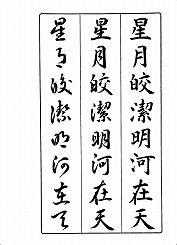 星月皎潔明河在天
星月皎潔明河在天
星月皎潔明河在天